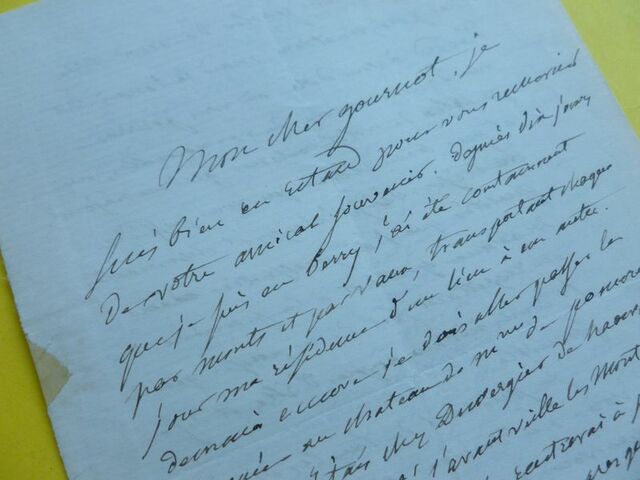 Mon cher gournot, je
suis bien en retard pour vous remercier
de votre amical souvenir. Depuis dix jours
que je suis en Berry, j'ai été constamment
par monts et par vaux, transportant chaque
jour ma résidence d'un lieu à un autre.
demain encore je dois aller passer la
au chateau de mme de
chez Duvergier de haur
j'avant ville les Mont
rentrerai à p